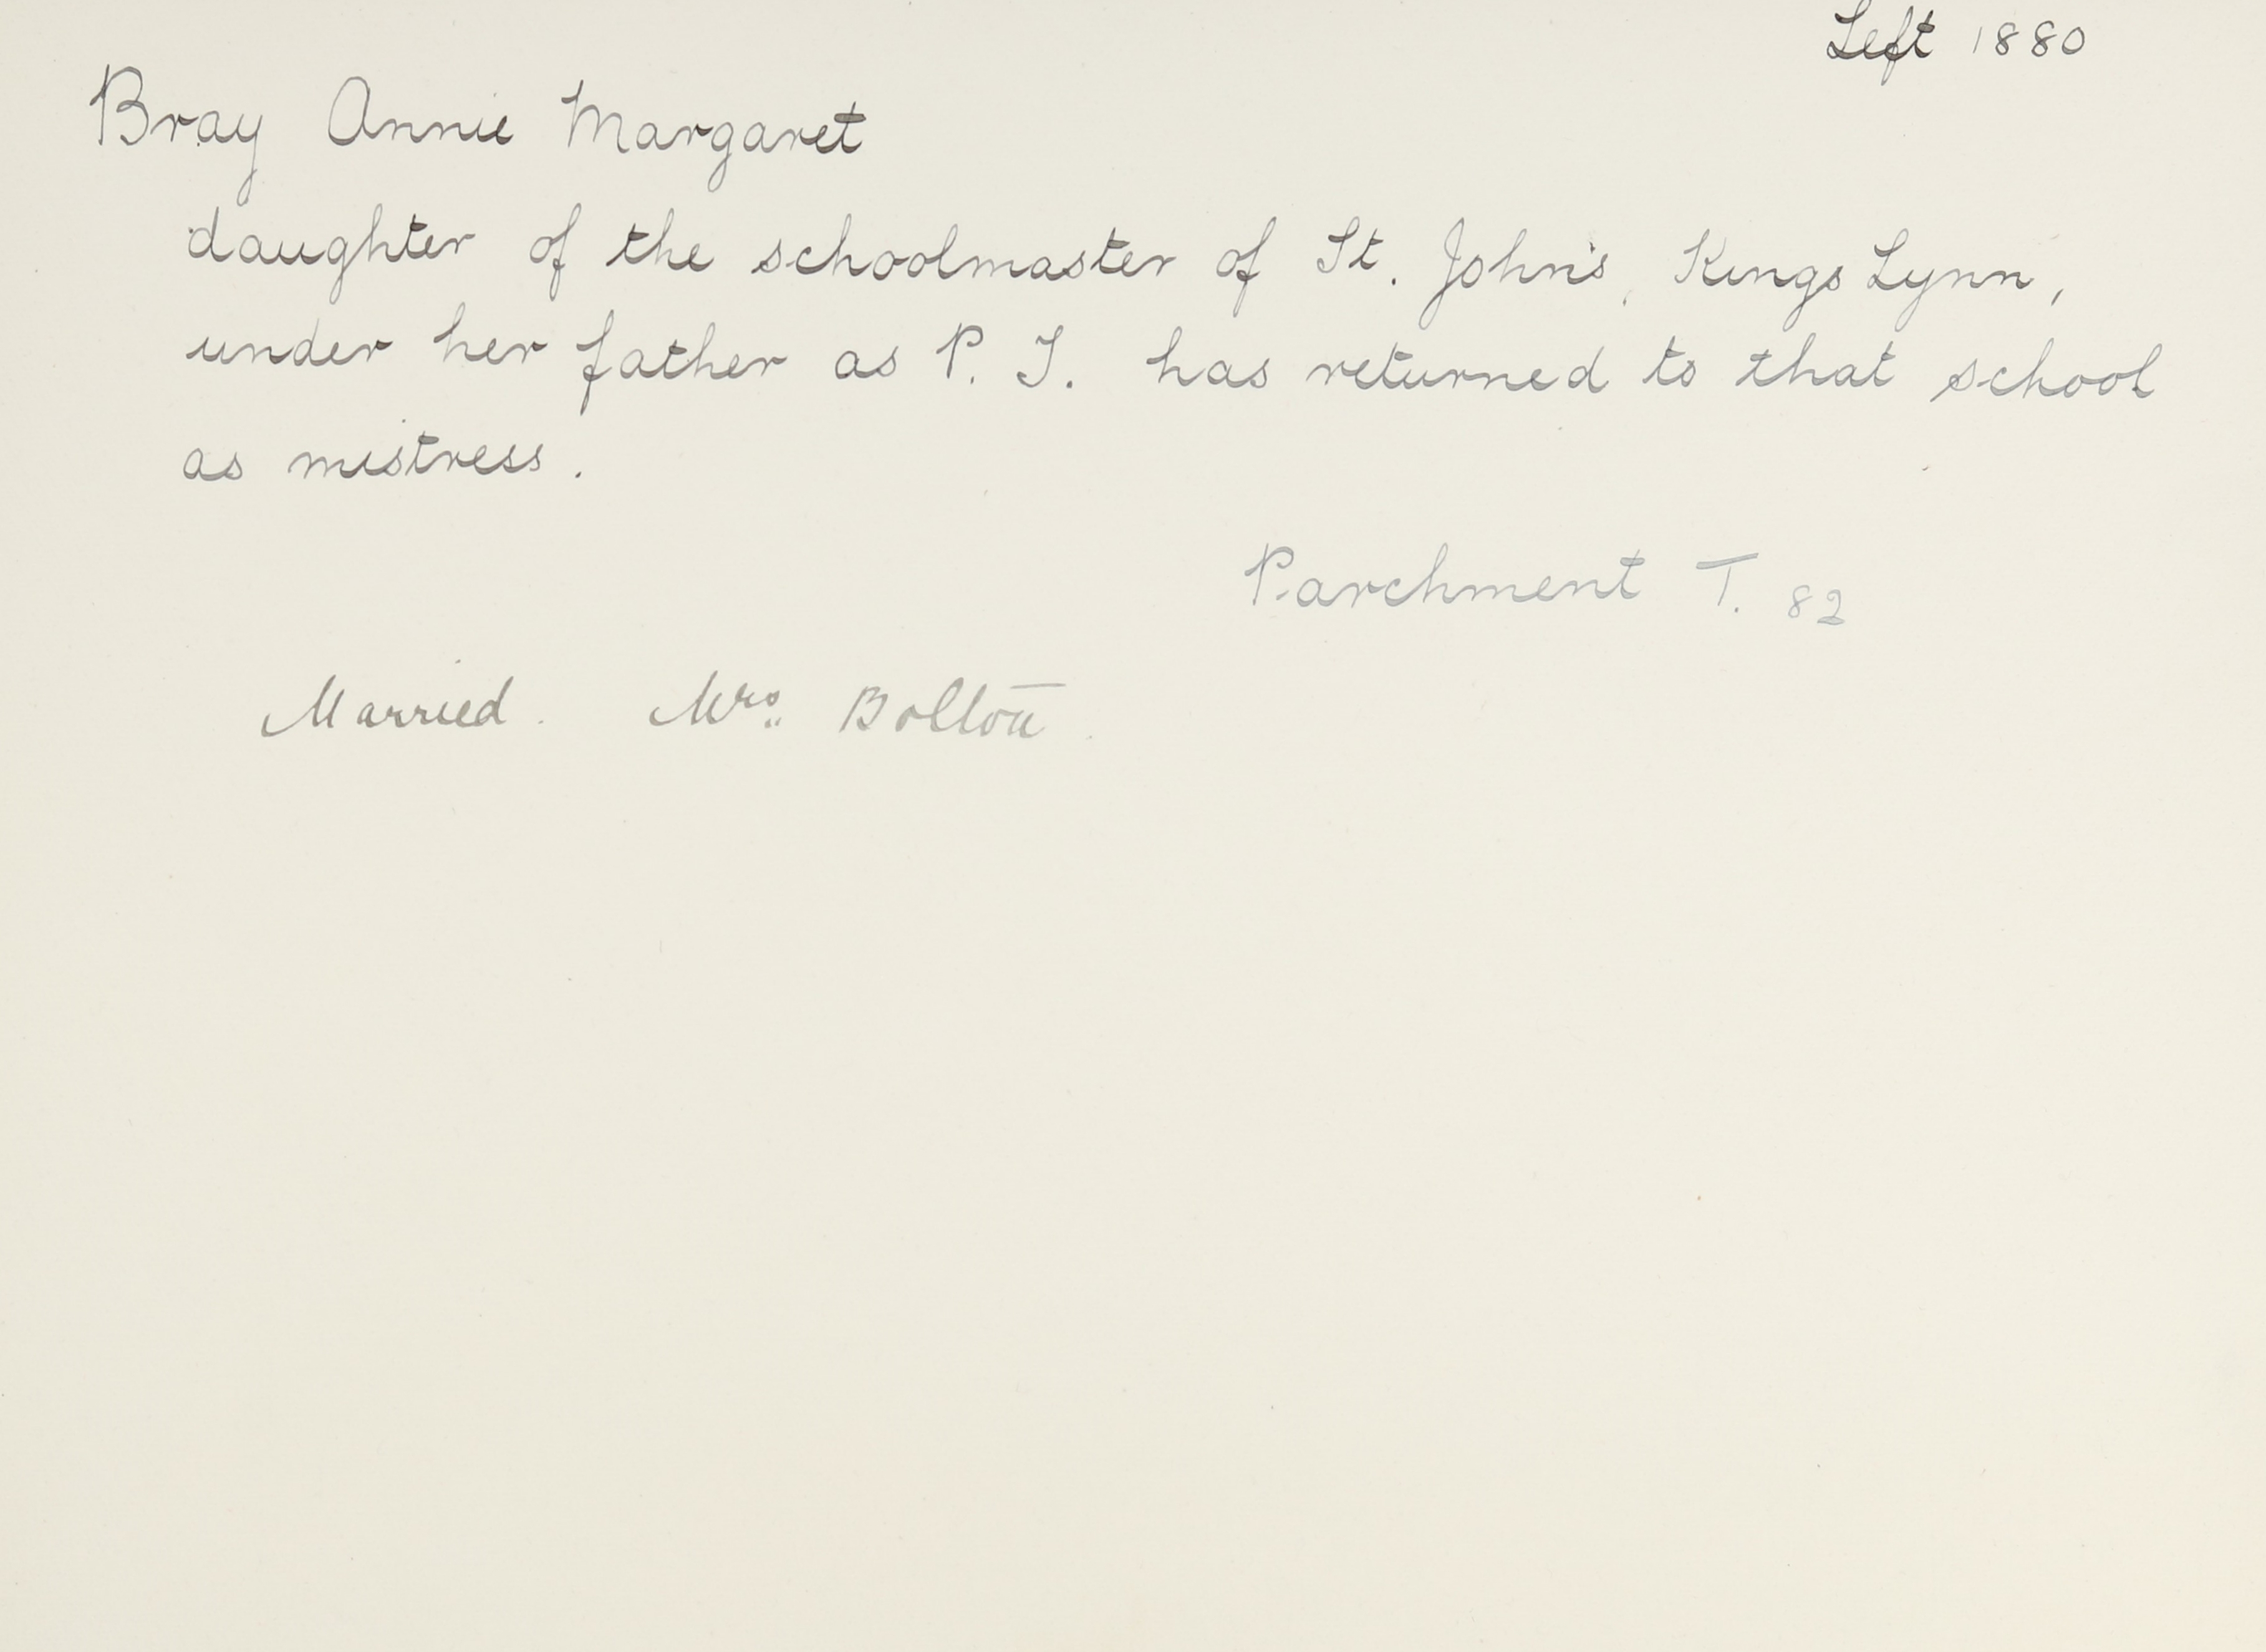 Left 1880
Bray Annie Margaret
daughter of the schoolmaster of St. John's, Kings Lynn,
under her father as P. T. has returned to that school
as mistress.
Parchment T. 82
Married. Mrs. Bolton.